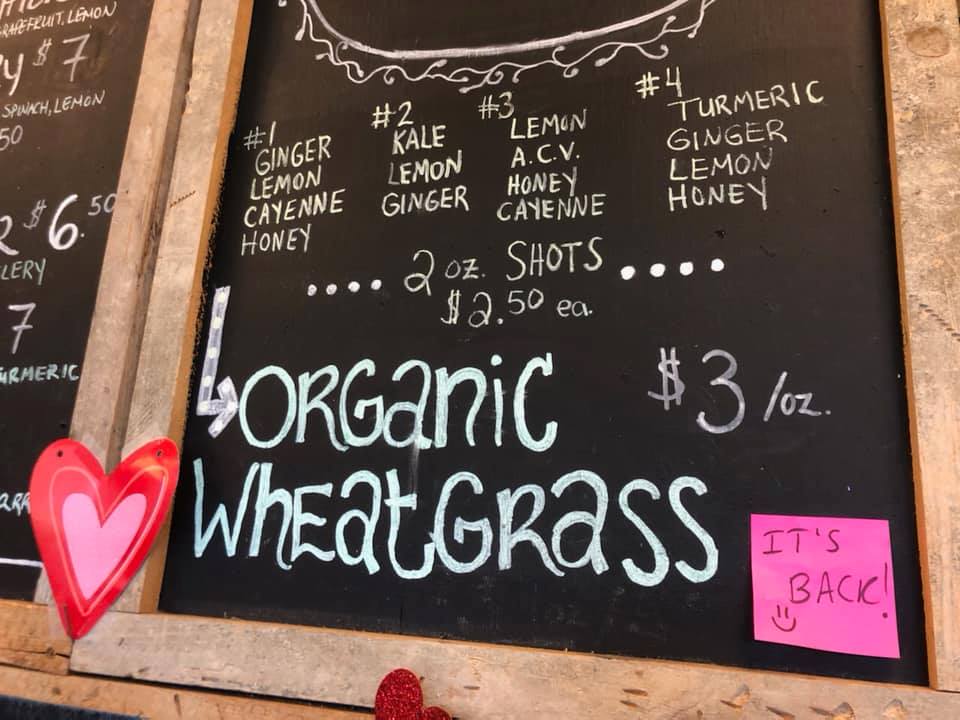 GRAPEFRUIT, LEMON
$7
SPINACH, LEMON
50
$6.50
7
#1
GINGER
LEMON
CAYENNE
HONEY
#2
KALE
LEMON
GINGER
#3
LEMON
A.C.V.
HONEY
CAYENNE
#4
TURMERIC
GINGER
LEMON
HONEY
.... 2 oz. SHOTS ....
$2.50 ea.
ORGanic $3/oz.
WhEatGRaSS
IT'S
BACK!